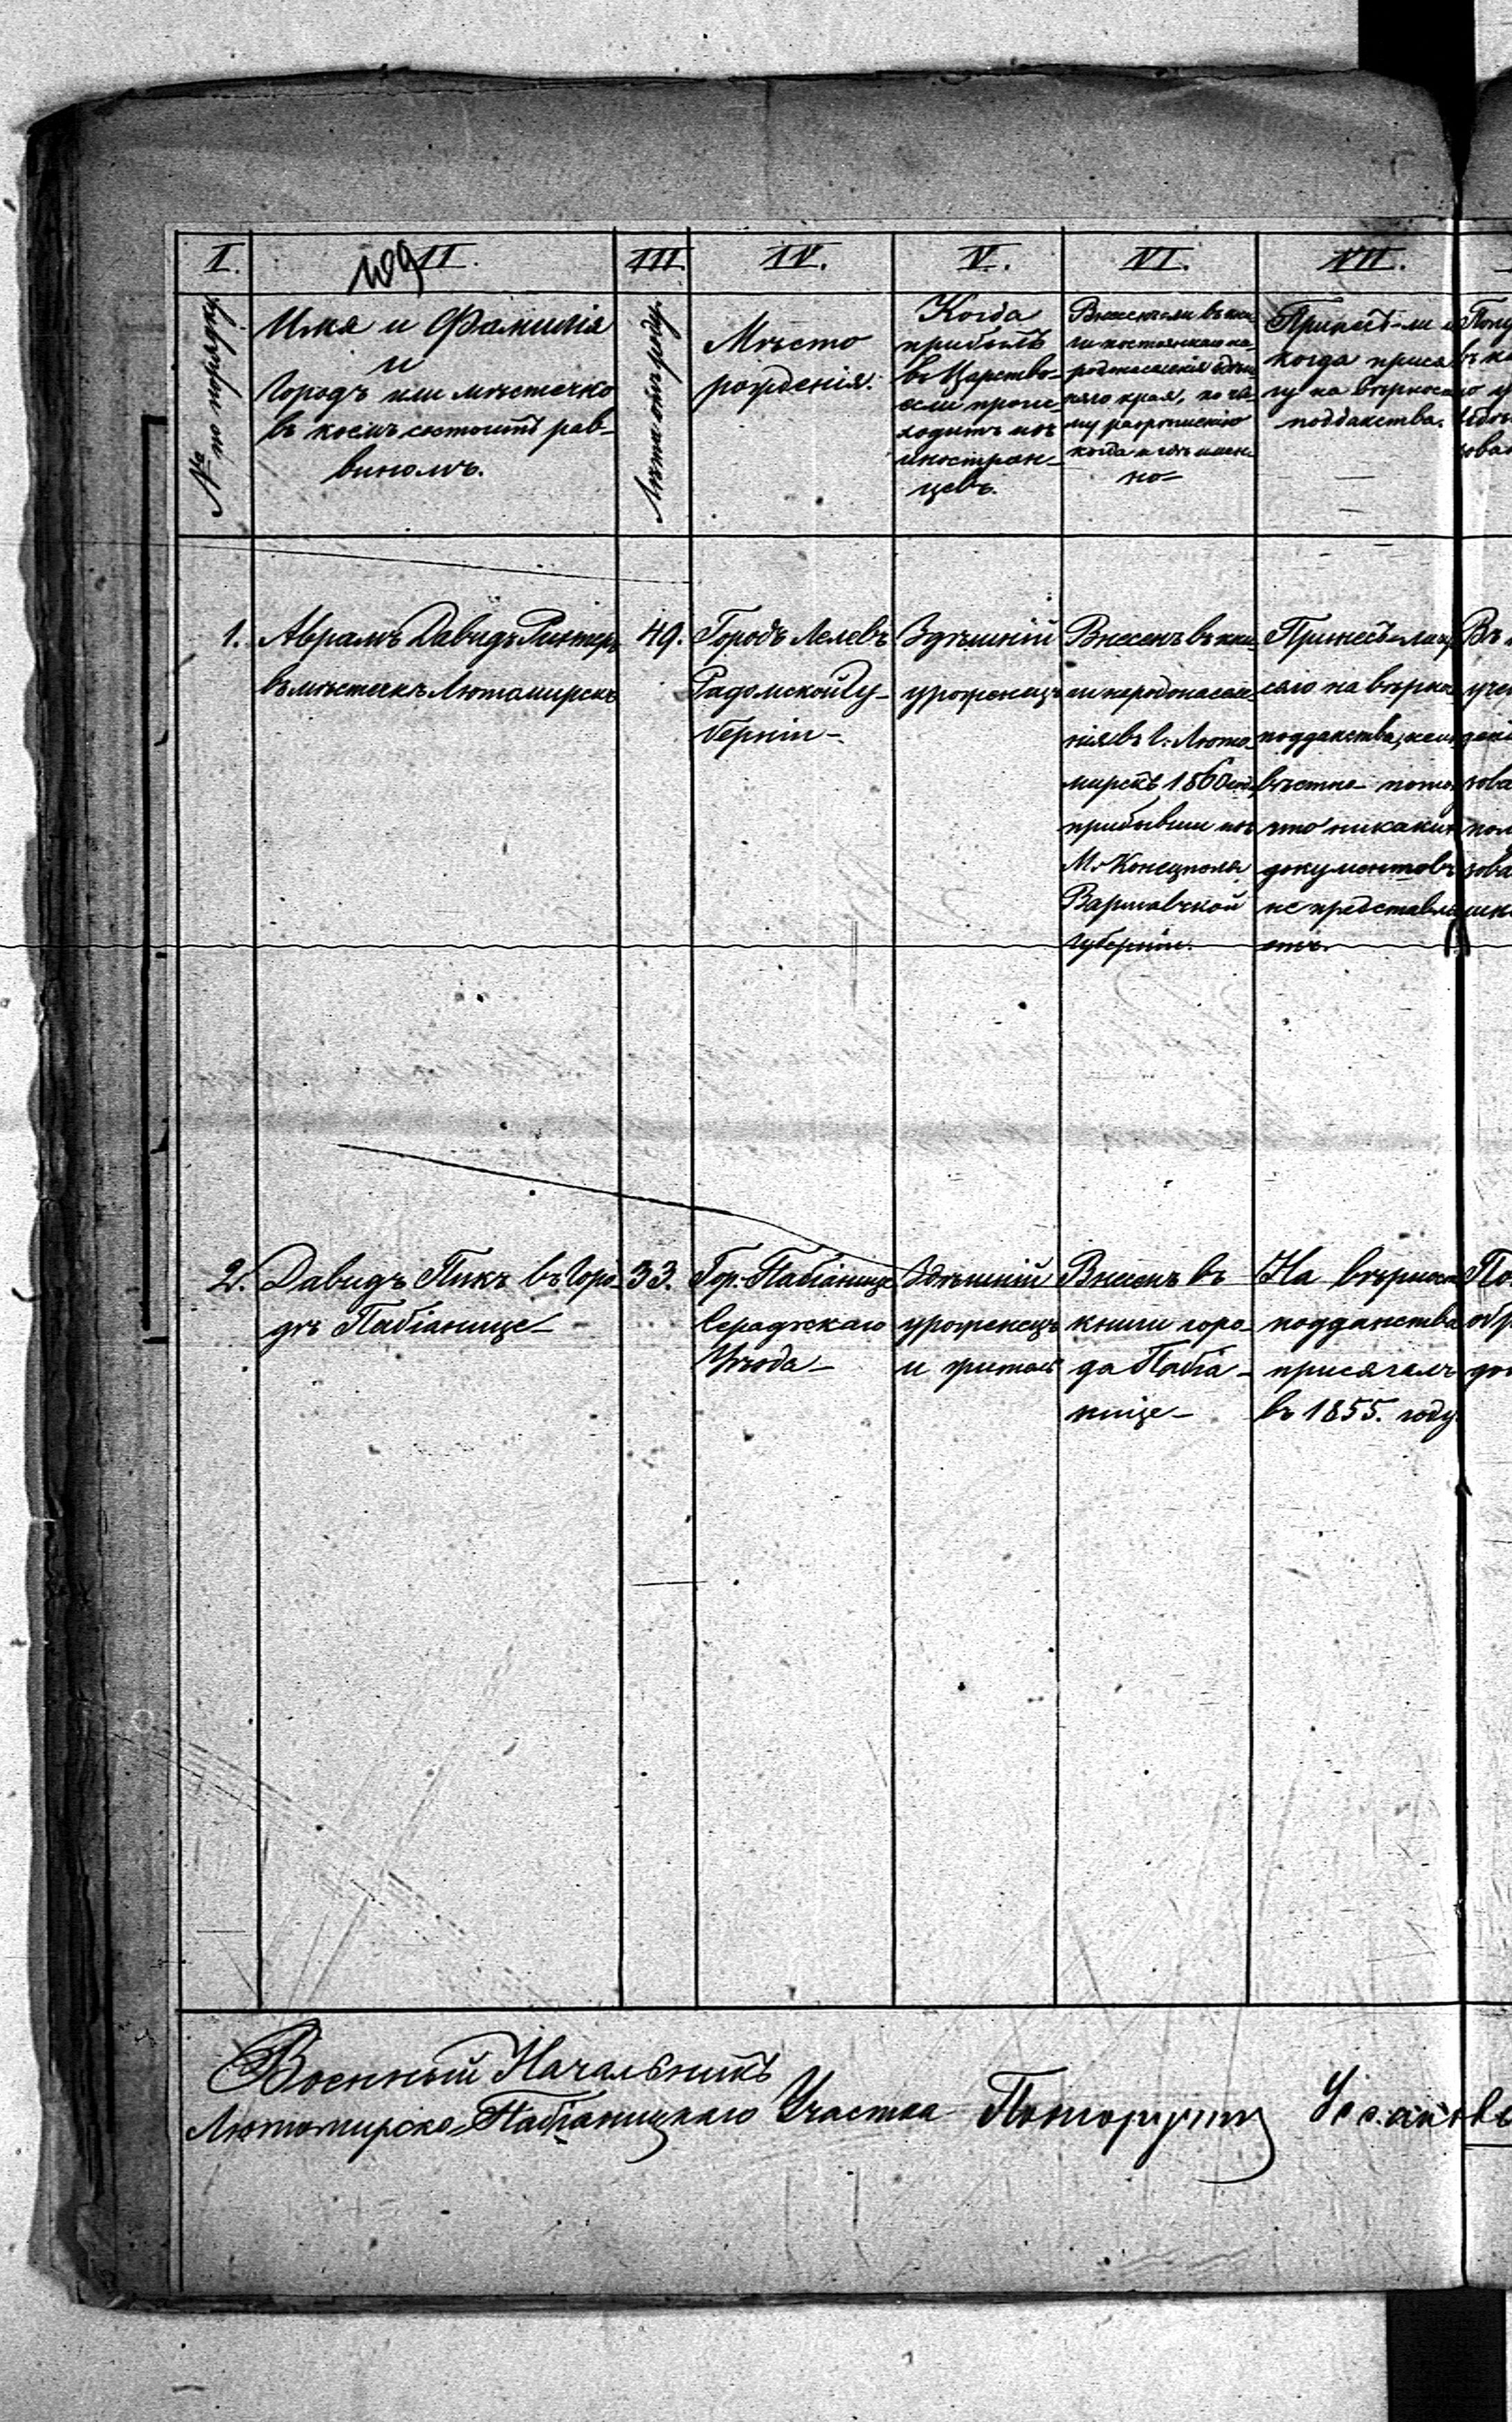 109
I.
II.
III.
IV.
V.
VI.
VII.
№ по порядку.
Имя и Фамилія
и
Городъ или мѣстечко
въ коемъ состоитъ рав-
виномъ.
Лѣта отъ роду.
Мѣсто
рожденія.
Когда
прибылъ
въ Царство
если проис-
ходитъ изъ
иностран-
цевъ.
Внесенъ-ли въ кни-
ги постояннаго на-
родонаселенія здѣш-
няго края, по ча-
му разрѣшенію
когда и гдѣ имен-
но-
когда прися
гу на вѣрность
подданства.
1.
Абрамъ Давидъ Рихтеръ
въ мѣстечкѣ Лютомирскъ
49.
Городъ Лелевъ
Радомской Гу-
берніи-
Здѣшній
уроженецъ
Внесенъ въ кни-
ги народонаселе-
нія въ г. Люто-
мирскѣ 1860 года
прибывши изъ
М. Конецполя
Варшавской
Губерніи.
Принесъ-ли при
сягу на вѣрно
подданства, неиз
вѣстно- потому
что никакихъ
документовъ
не представля
етъ.
2.
Давидъ Пикъ въ Горо-
дѣ Пабіанице-
33.
Гор. Пабіаница
Серадзскаго
Уѣзда-
Здѣшній
уроженецъ
и житель
Внесенъ въ
книги горо-
да Пабіа-
нице-
На вѣрность
подданства
присягалъ
въ 1855. году
Военный Начальникъ
Лютомирско-Пабіаницкаго Участка